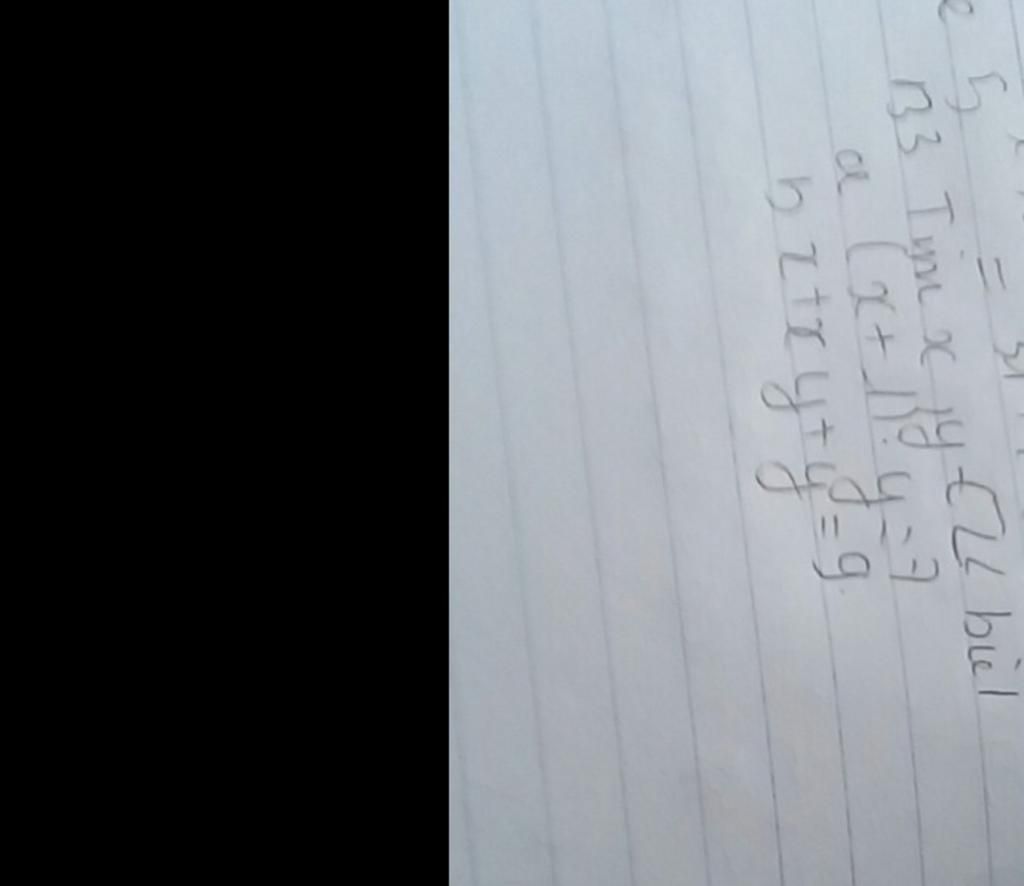 B3 Tìm x, y ∈ Z biết
a (x+1).y=7
b x+xy+y=9